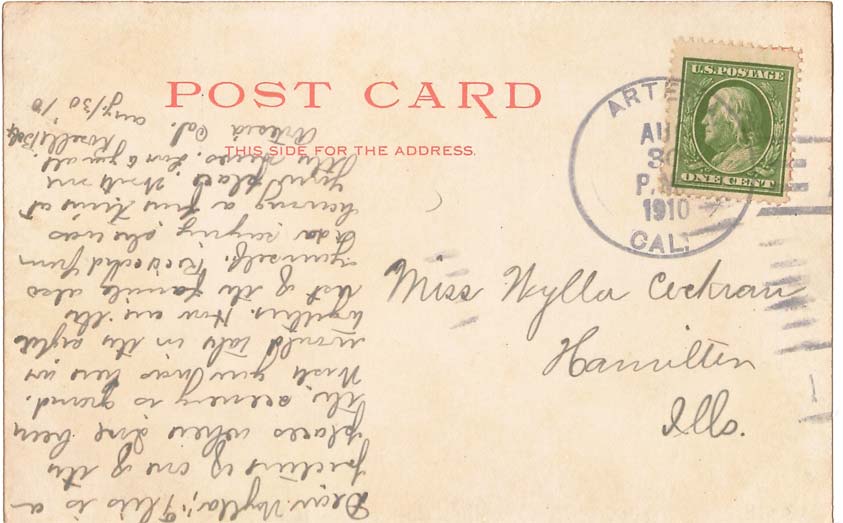 POST CARD
THIS SIDE FOR THE ADDRESS.
U.S. POSTAGE
ONE CENT
ARTE
AU
30
P.M.
1910
CAL.
Miss Wylla Cochran
Hamilton
Ills.
Dear Wylla; This is a
picture of one of the
places where I've been
The scenery is grand.
Wish you was here we
would take in the sights
together. How are the
rest of the family also
yourself. Received from
Ida saying she was
having a fine time at
your place. Write me
the news. Love to you all.
Artesia Cal. Aug/30 '10